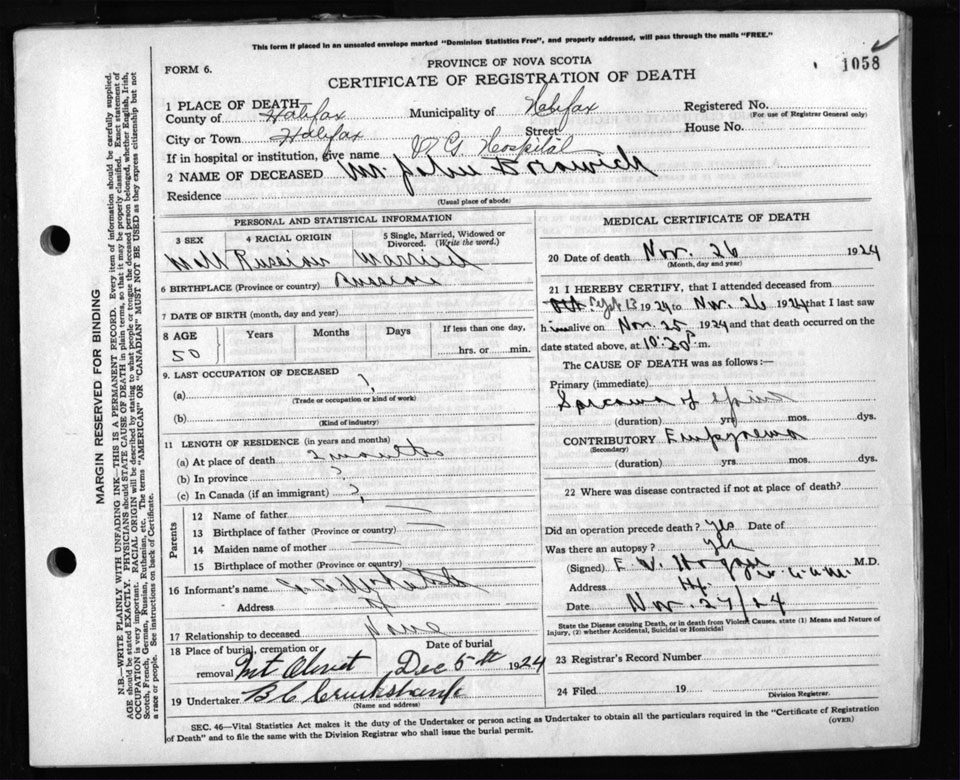 This form if placed in an unsealed envelope marked "Dominion Statistics Free", and properly addressed, will pass through the mails "FREE."
FORM 6.
PROVINCE OF NOVA SCOTIA
1058
CERTIFICATE OF REGISTRATION OF DEATH
1 PLACE OF DEATH—
County of Halifax Municipality of Halifax Registered No.
(For use of Registrar General only)
City or Town Halifax Street House No.
If in hospital or institution, give name V G Hospital
2 NAME OF DECEASED Mr. John
Residence
(Usual place of abode)
PERSONAL AND STATISTICAL INFORMATION
3 SEX 4 RACIAL ORIGIN 5 Single, Married, Widowed or Divorced. (Write the word.)
Married
6 BIRTHPLACE (Province or country)
7 DATE OF BIRTH (month, day and year)
8 AGE Years Months Days If less than one day,
50 hrs. or min.
9. LAST OCCUPATION OF DECEASED
(a) ?
(Trade or occupation or kind of work)
(b)
(Kind of industry)
11 LENGTH OF RESIDENCE (in years and months)
(a) At place of death 2 months
(b) In province ?
(c) In Canada (if an immigrant) ?
Parents
12 Name of father —
13 Birthplace of father (Province or country) —
14 Maiden name of mother —
15 Birthplace of mother (Province or country)
16 Informant's name
Address
17 Relationship to deceased None
18 Place of burial, cremation or removal Date of burial
Mt Olivet Dec 5th 1924
19 Undertaker B C Cruikshank
(Name and address)
MEDICAL CERTIFICATE OF DEATH
20 Date of death Nov. 26 1924
(Month, day and year)
21 I HEREBY CERTIFY, that I attended deceased from
Sept 13 1924 to Nov. 26 1924 that I last saw
him alive on Nov. 25 1924 and that death occurred on the
date stated above, at 10.30 p m.
The CAUSE OF DEATH was as follows:—
Primary (immediate)
Sarcoma of Spine
(duration) yrs. mos. dys.
CONTRIBUTORY Empyema
(Secondary)
(duration) yrs. mos. dys.
22 Where was disease contracted if not at place of death?
Did an operation precede death? yes Date of
Was there an autopsy? yes
(Signed) E. V. Hogan M.D.
Address Hx.
Date Nov. 27/24
State the Disease causing Death, or in death from Violent Causes, state (1) Means and Nature of
Injury, (2) whether Accidental, Suicidal or Homicidal
23 Registrar's Record Number
24 Filed 19
Division Registrar.
SEC. 46—Vital Statistics Act makes it the duty of the Undertaker or person acting as Undertaker to obtain all the particulars required in the "Certificate of Registration
of Death" and to file the same with the Division Registrar who shall issue the burial permit.
(OVER)
MARGIN RESERVED FOR BINDING
N.B.—WRITE PLAINLY WITH UNFADING INK—THIS IS A PERMANENT RECORD. Every item of information should be carefully supplied.
AGE should be stated EXACTLY. PHYSICIANS should STATE CAUSE OF DEATH in plain terms, so that it may be properly classified. Exact statement of
OCCUPATION is very important. RACIAL ORIGIN will be described by stating to what people or tongue the deceased person belonged, whether English, Irish,
Scotch, French, German, Russian, Ruthenian, etc. The terms "AMERICAN" OR "CANADIAN" MUST NOT BE USED as they express citizenship but not
a race or people. See instructions on back of Certificate.